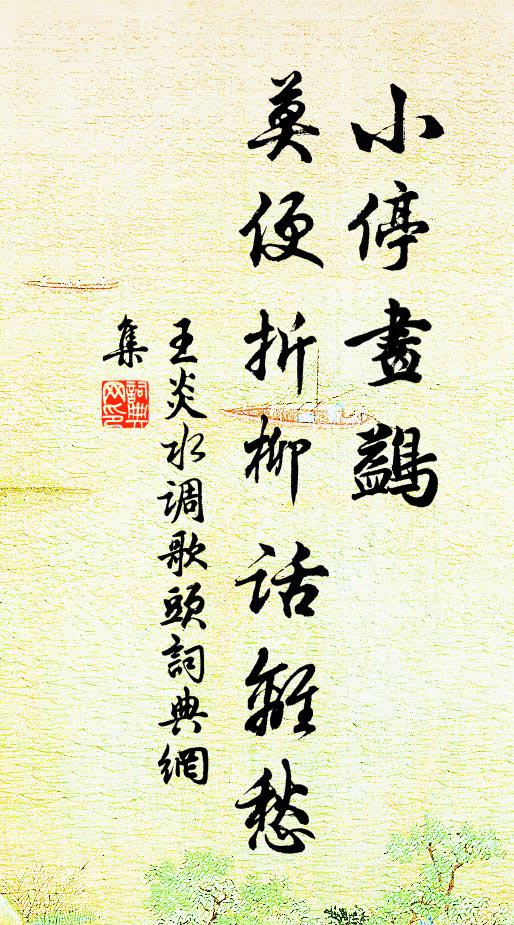 小停畫鷁
莫便折柳話離愁
王炎水调歌頭詞典網
集
詞典網印